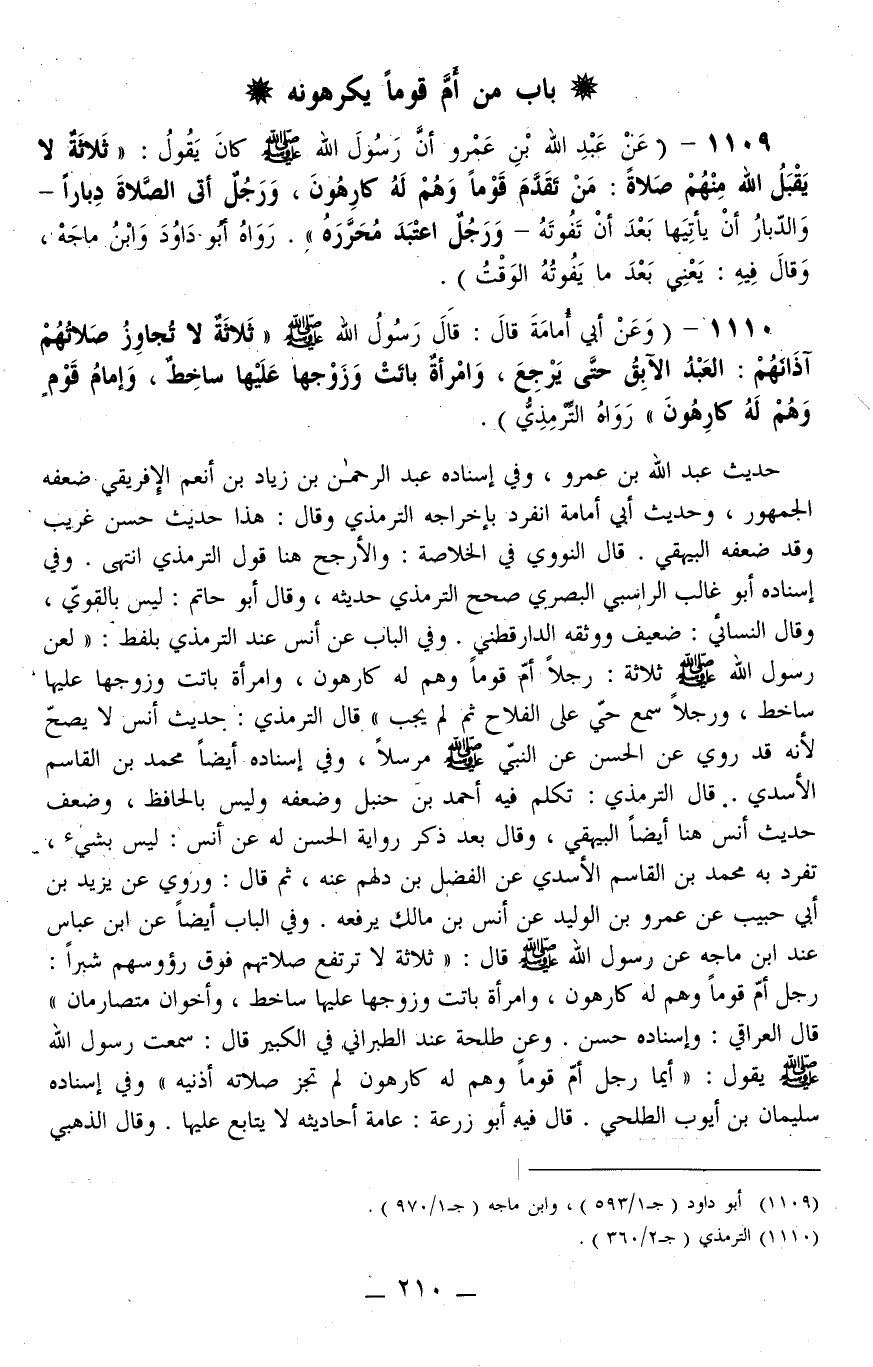 ✹ باب من أَمَّ قوماً يكرهونه ✹
١١٠٩ – ( عَنْ عَبْدِ الله بْنِ عَمْرو أنَّ رَسُولَ الله ﷺ كانَ يَقُولُ : « ثَلاثَةٌ لا
يَقْبَلُ الله مِنْهُمْ صَلاةً : مَنْ تَقَدَّمَ قَوْماً وَهُمْ لَهُ كارِهُونَ ، وَرَجُلٌ أتى الصَّلاةَ دِباراً –
وَالدّبارُ أنْ يأتِيَها بَعْدَ أنْ تَفُوتَهُ – وَرَجُلٌ اعتْبَدَ مُحَرَّرَهُ » . رَوَاهُ أبُو دَاوُدَ وَابْنُ ماجَهْ ،
وَقالَ فِيهِ : يَعْنِي بَعْدَ ما يَفُوتُهُ الوَقْتُ ) .
١١١٠ – ( وَعَنْ أبي أُمامَةَ قالَ : قالَ رَسُولُ الله ﷺ « ثَلاثَةٌ لا تُجاوِزُ صَلاتُهُمْ
آذَانَهُمْ : العَبْدُ الآبِقُ حتَّى يَرْجِعَ ، وَامْرأةٌ باتَتْ وَزَوْجها عَلَيْها ساخِطٌ ، وَإمامُ قَوْمٍ
وَهُمْ لَهُ كارِهُونَ » رَوَاهُ التِّرْمِذِيُّ ) .
حديث عبد الله بن عمرو ، وفي إسناده عبد الرحمٰن بن زياد بن أنعم الإفريقي ضعفه
الجمهور ، وحديث أبي أمامة انفرد بإخراجه الترمذي وقال : هذا حديث حسن غريب
وقد ضعفه البيهقي . قال النووي في الخلاصة : والأرجح هنا قول الترمذي انتهى . وفي
إسناده أبو غالب الراسبي البصري صحح الترمذي حديثه ، وقال أبو حاتم : ليس بالقويّ ،
وقال النسائي : ضعيف ووثقه الدارقطني . وفي الباب عن أنس عند الترمذي بلفظ : « لعن
رسول الله ﷺ ثلاثة : رجلاً أمّ قوماً وهم له كارهون ، وامرأة باتت وزوجها عليها
ساخط ، ورجلاً سمع حيّ على الفلاح ثم لم يجب » قال الترمذي : حديث أنس لا يصحّ
لأنه قد روي عن الحسن عن النبيّ ﷺ مرسلاً ، وفي إسناده أيضاً محمد بن القاسم
الأسدي . قال الترمذي : تكلم فيه أحمد بن حنبل وضعفه وليس بالحافظ ، وضعف
حديث أنس هنا أيضاً البيهقي ، وقال بعد ذكر رواية الحسن له عن أنس : ليس بشيء ،
تفرد به محمد بن القاسم الأسدي عن الفضل بن دلهم عنه ، ثم قال : وروي عن يزيد بن
أبي حبيب عن عمرو بن الوليد عن أنس بن مالك يرفعه . وفي الباب أيضاً عن ابن عباس
عند ابن ماجه عن رسول الله ﷺ قال : « ثلاثة لا ترتفع صلاتهم فوق رؤوسهم شبراً :
رجل أمّ قوماً وهم له كارهون ، وامرأة باتت وزوجها عليها ساخط ، وأخوان متصارمان »
قال العراقي : وإسناده حسن . وعن طلحة عند الطبراني في الكبير قال : سمعت رسول الله
ﷺ يقول : « أيما رجل أمّ قوماً وهم له كارهون لم تجز صلاته أذنيه » وفي إسناده
سليمان بن أيوب الطلحي . قال فيه أبو زرعة : عامة أحاديثه لا يتابع عليها . وقال الذهبي
(١١٠٩) أبو داود ( جـ٥٩٣/١ ) ، وابن ماجه ( جـ٩٧٠/١ ) .
(١١١٠) الترمذي ( جـ٣٦٠/٢ ) .
– ٢١٠ –